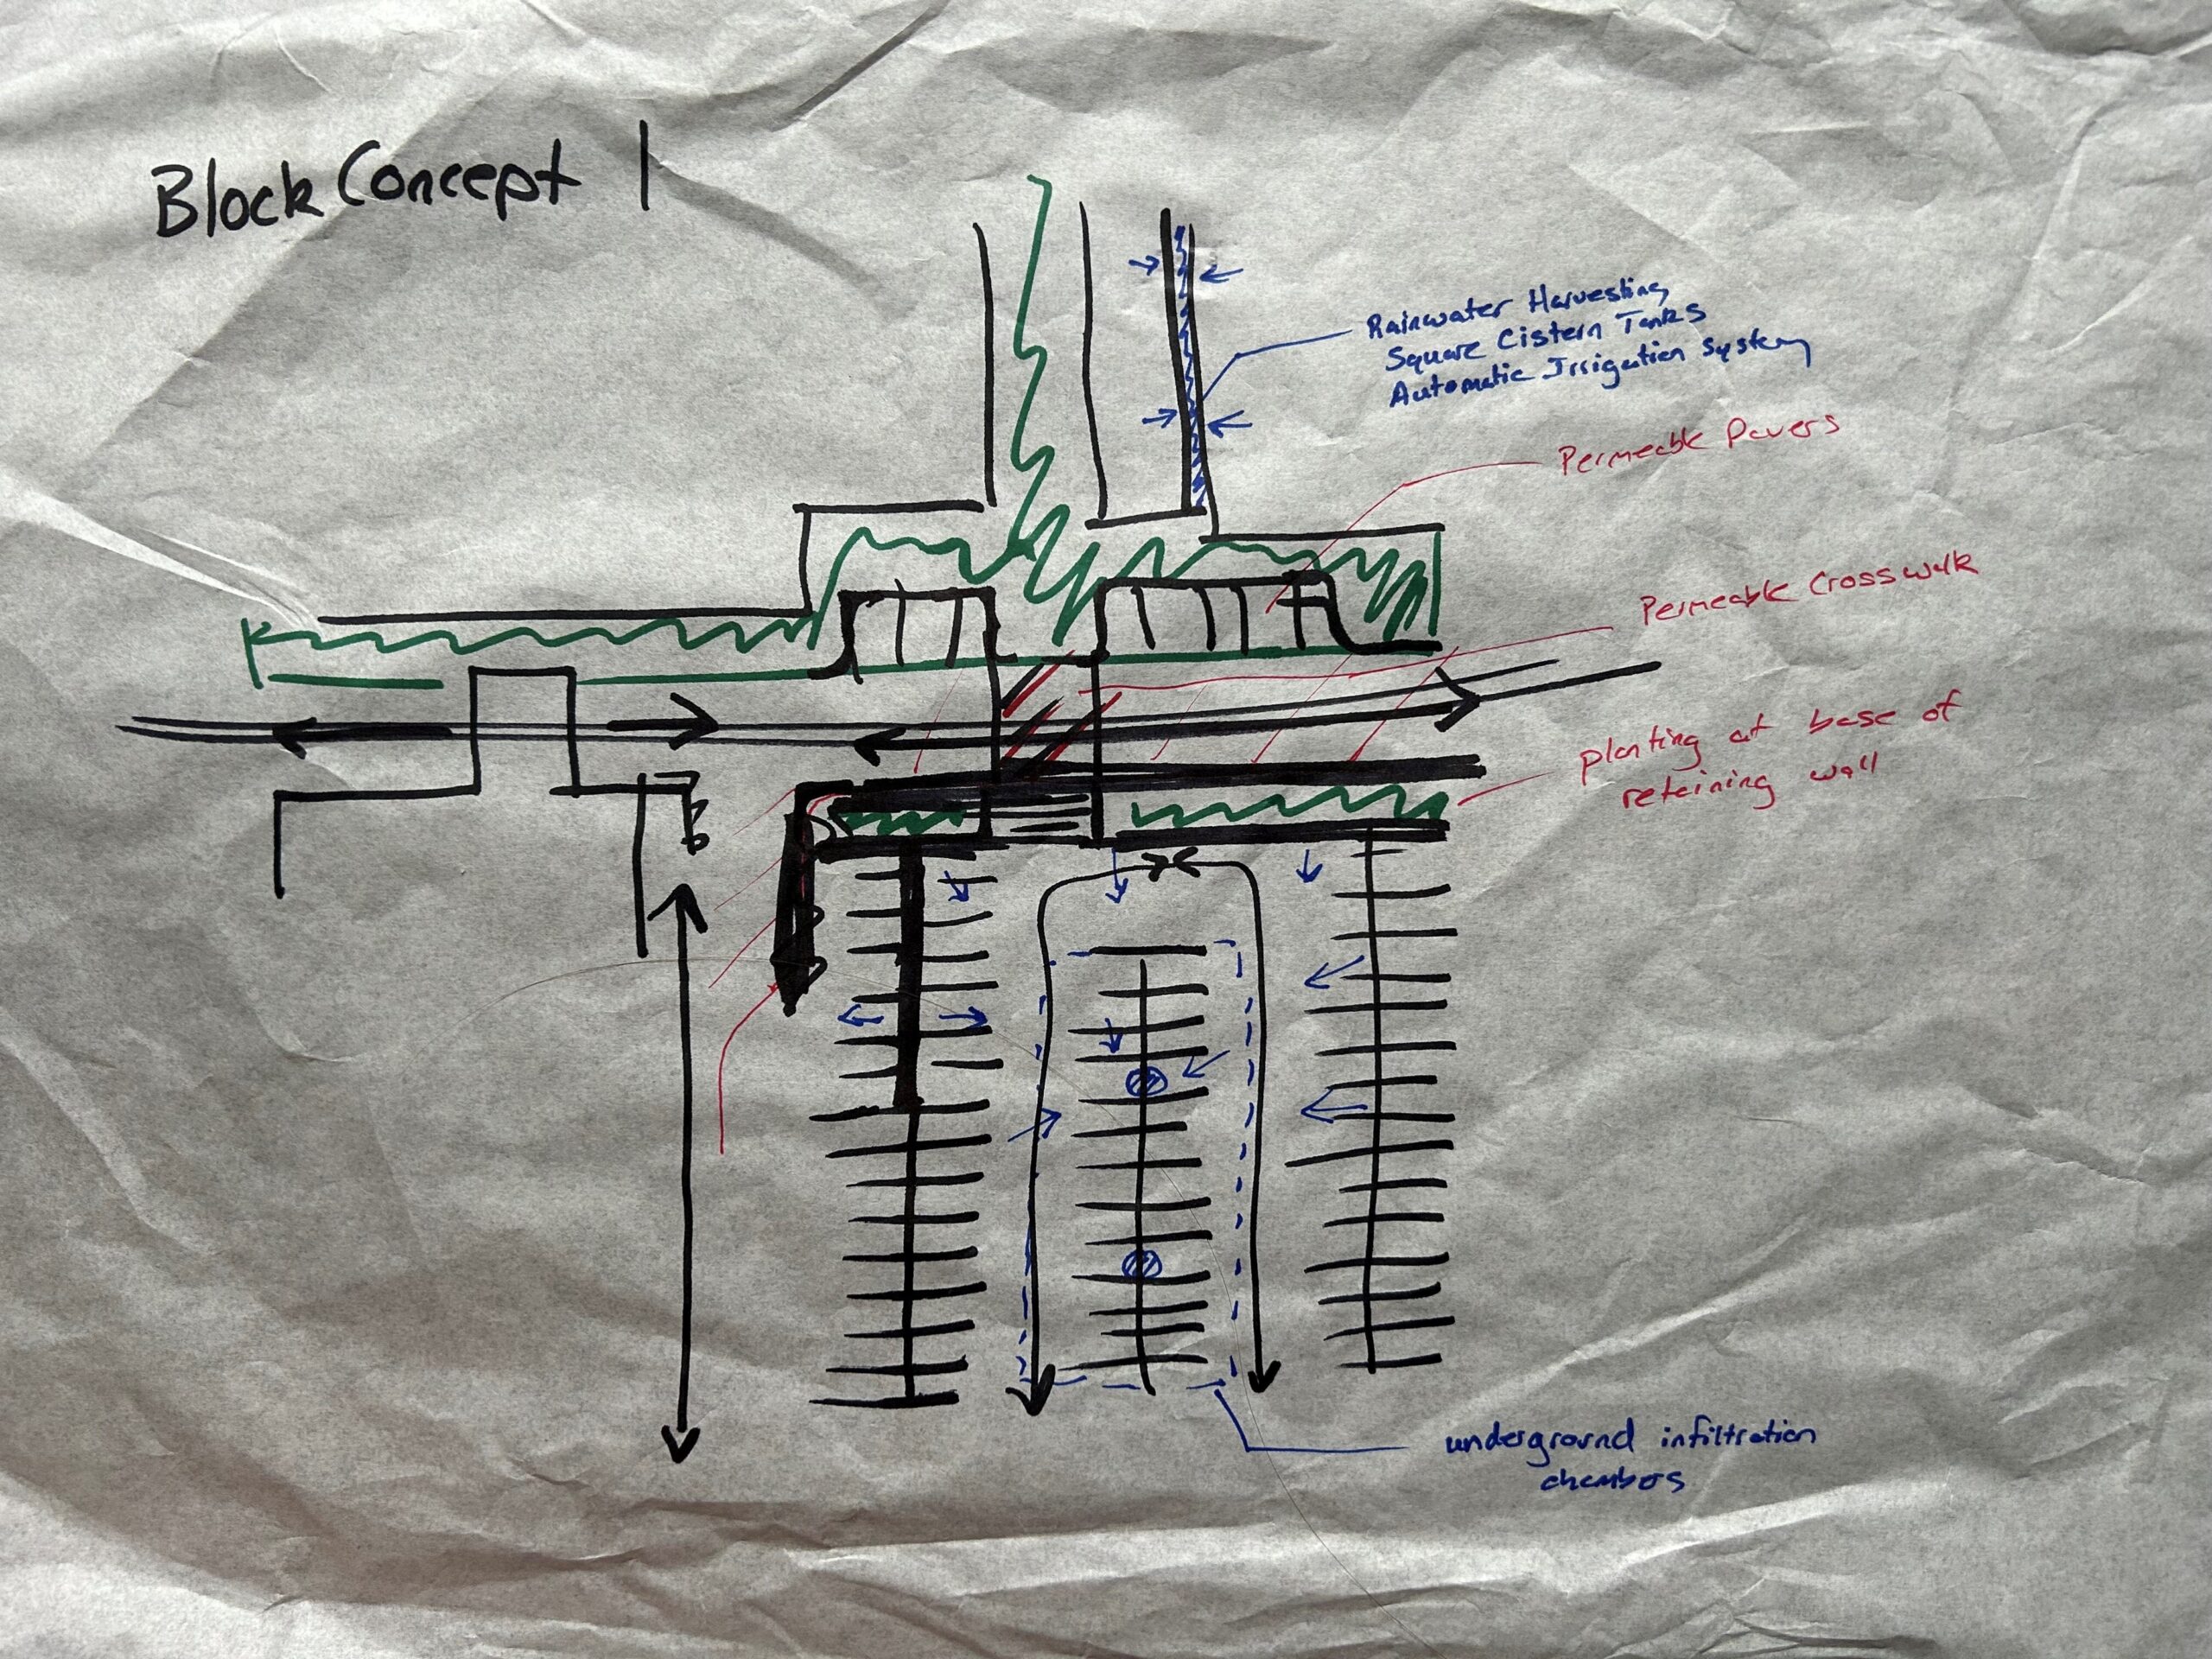 Block Concept 1
Rainwater Harvesting
Square Cistern Tanks
Automatic Irrigation System
Permeable Pavers
Permeable Crosswalk
planting at base of
retaining wall
underground infiltration
chambers